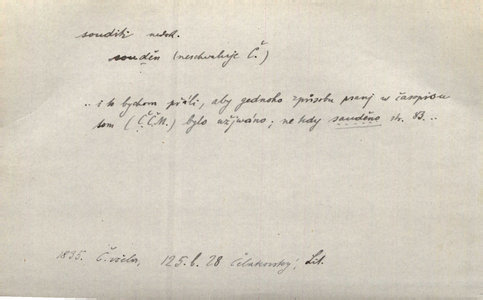 souditi nedok.
souděn (neschvaluje Č.)
.. i to bychom přáli, aby gednoho způsobu psanj w časopisu
tom (Č.Č.M.) bylo užjwáno; ne kdy sauděno str. 83...
1835. Č. včela, 125.b.28 Čelakovský; Lit.